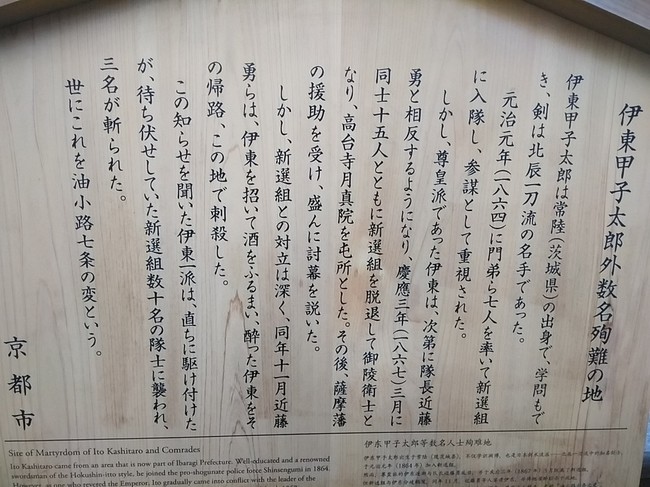 伊東甲子太郎外数名殉難の地
伊東甲子太郎は常陸(茨城県)の出身で、学問もで
き、剣は北辰一刀流の名手であった。
元治元年(一八六四)に門弟ら七人を率いて新選組
に入隊し、参謀として重視された。
しかし、尊皇派であった伊東は、次第に隊長近藤
勇と相反するようになり、慶應三年(一八六七)三月に
同士十五人とともに新選組を脱退して御陵衛士と
なり、高台寺月真院を屯所とした。その後、薩摩藩
の援助を受け、盛んに討幕を説いた。
しかし、新選組との対立は深く、同年十一月近藤
勇らは、伊東を招いて酒をふるまい、酔った伊東をそ
の帰路、この地で刺殺した。
この知らせを聞いた伊東一派は、直ちに駆け付けた
が、待ち伏せしていた新選組数十名の隊士に襲われ、
三名が斬られた。
世にこれを油小路七条の変という。
京都市
Site of Martyrdom of Ito Kashitaro and Comrades
Ito Kashitaro came from an area that is now part of Ibaragi Prefecture. Well-educated and a renowned
swordsman of the Hokushin-itto style, he joined the pro-shogunate police force Shinsengumi in 1864.
However, as one who revered the Emperor, Ito gradually came into conflict with the leader of the
伊东甲子太郎等数名人士殉难地